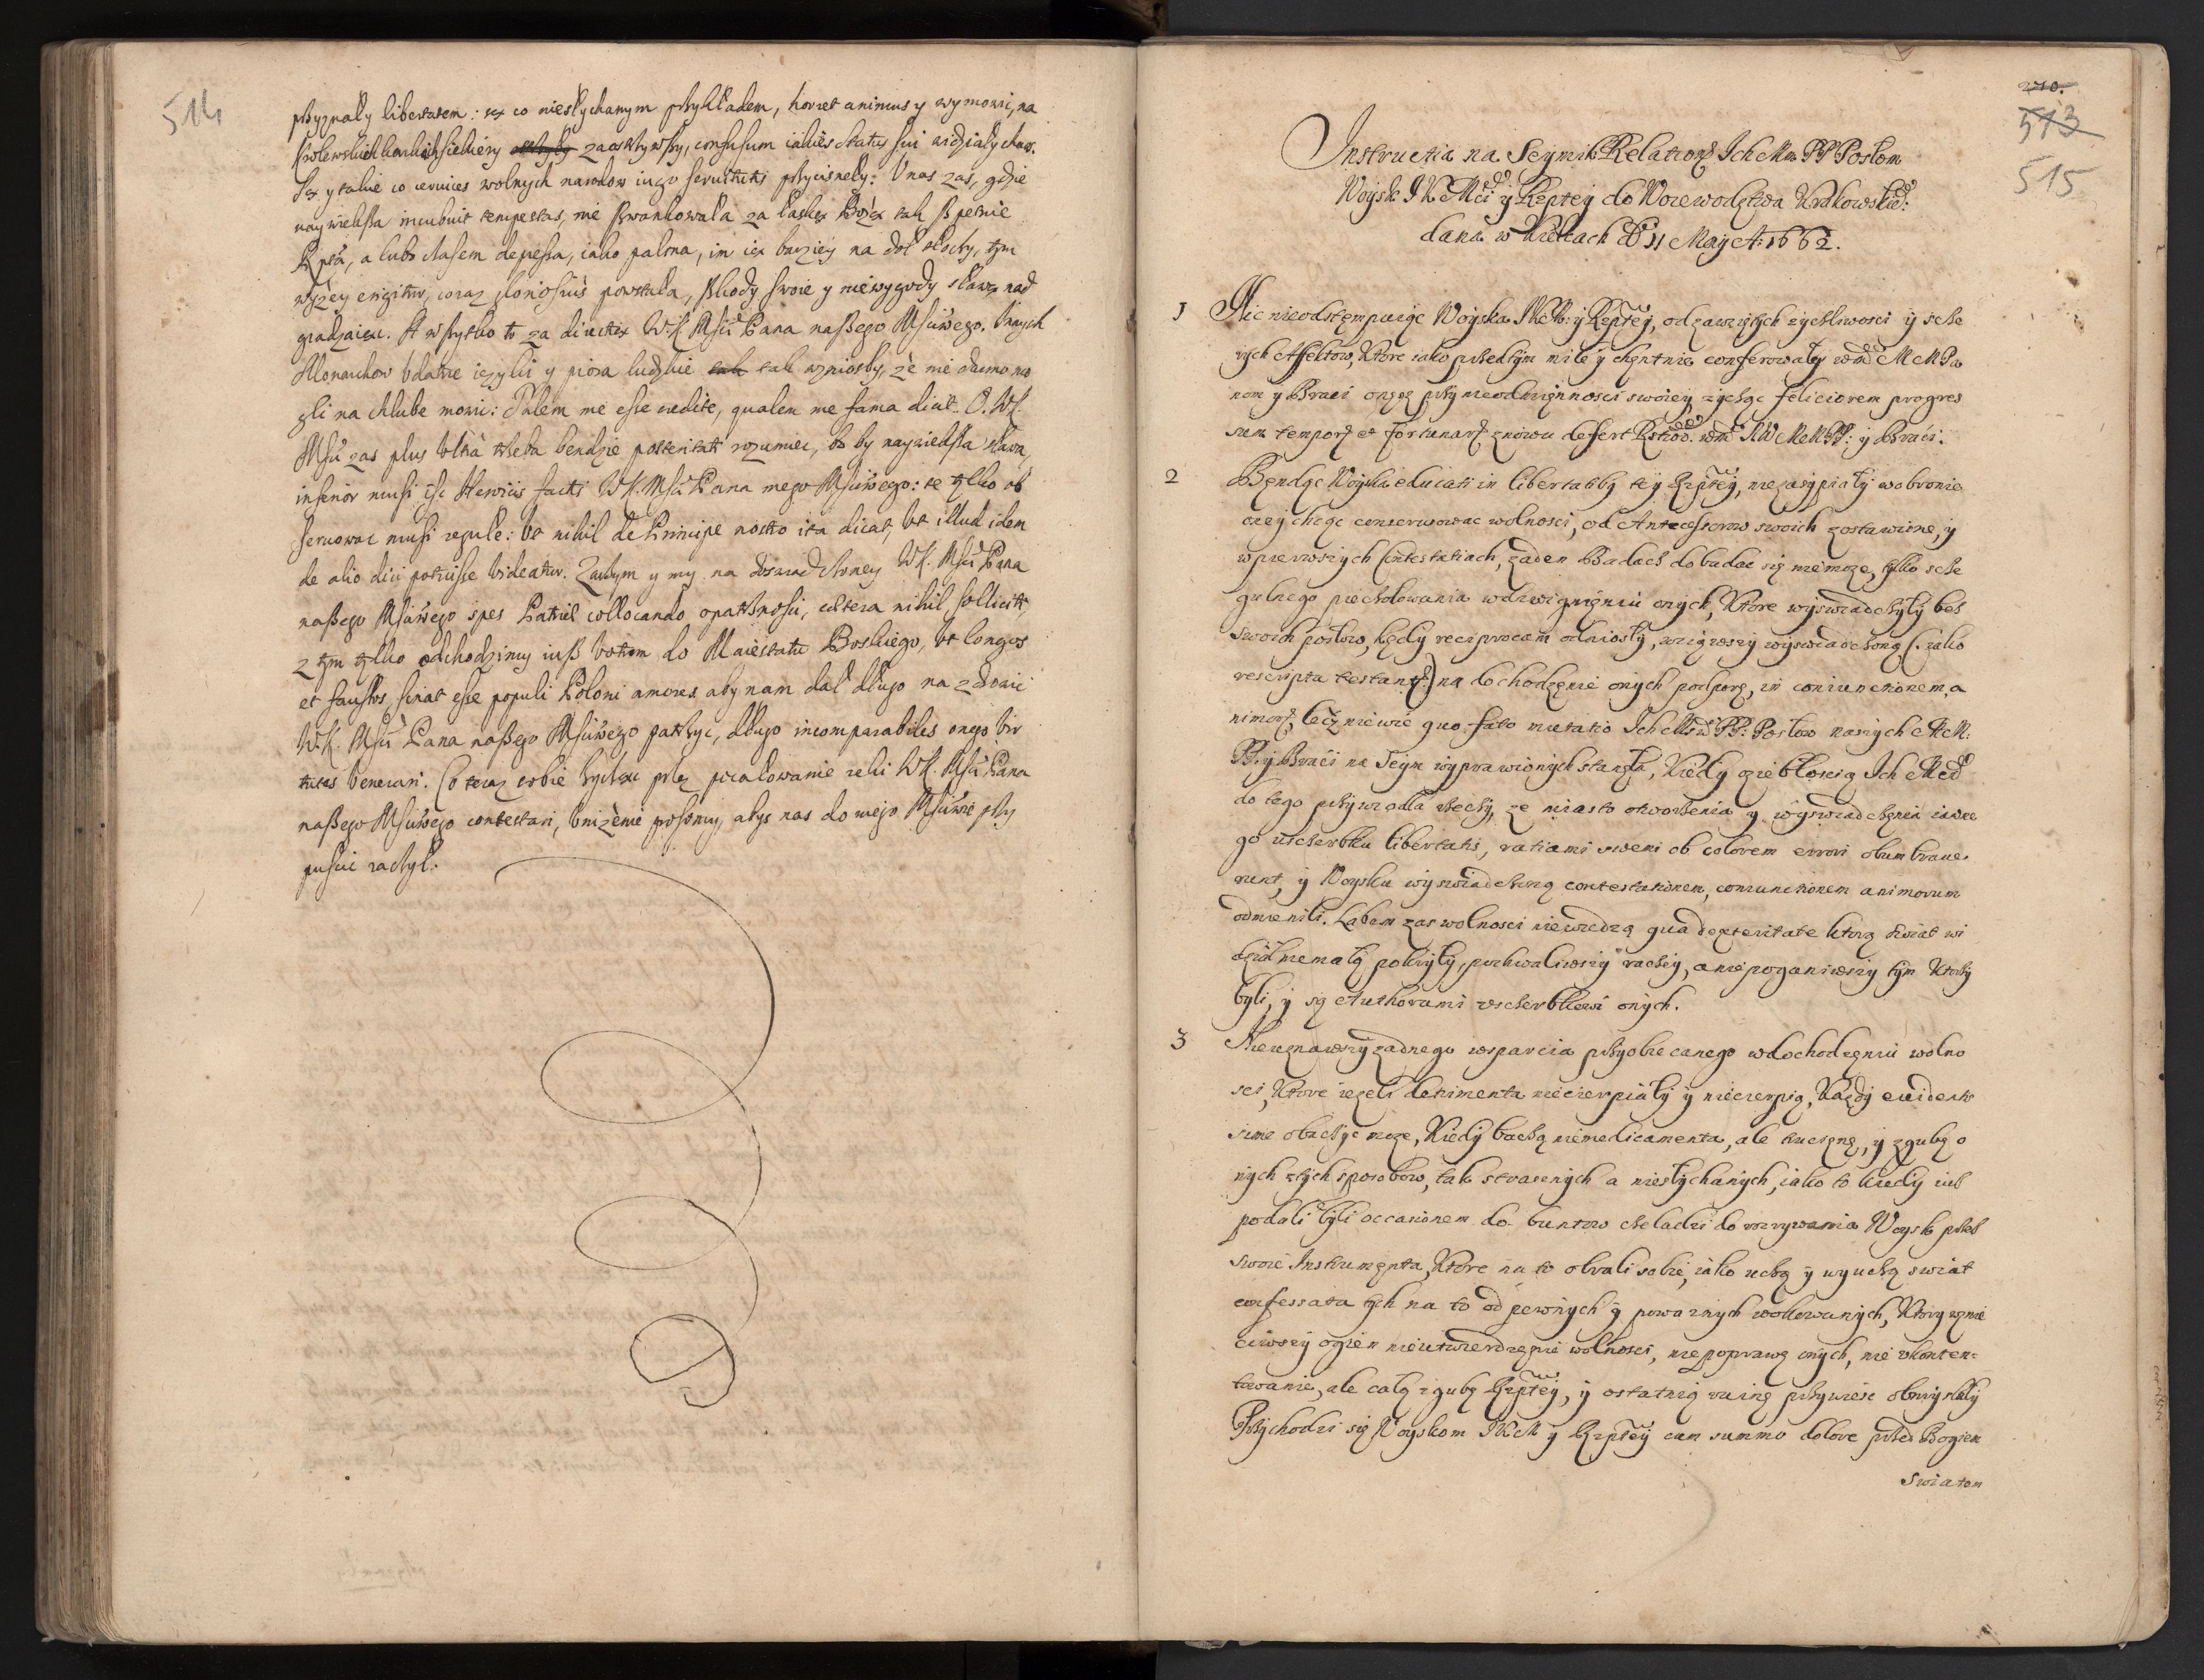 514
przyznały libertatem: co niesłychanym przykładem, horret animus y wymowić, na
Krolewskich karkach siekiery zaostrzywszy, confusum status sui widziały chaos.
y takie co cervices wolnych narodow iugo servitutis przycisnely: U nas zas, gdzie
naywieksza incubuit tempestas, nie szwankowała za łaską Bożą tak szpetnie
Rptą, a lubo czasem depressa, iako palma, im ią barziey na doł tym
wyzey erigitur, coraz gloriosius powstała, szkody swoie y niewygody sławą nad
gradzaiąc. A wszytko to za W.K. Msci Pana naszego Msciwego. Innych
Monarchow udatne ięzyki y piora ludzkie tak wzniosły, że nie darmo mo
gli na chlube mowic: Talem me esse credite, qualem me fama dicit. O W.K.
Msci zas plus ultra trzeba bendzie posteritati rozumiec, bo by naywieksza sława,
inferior musi iść Heroicis factis W.K. Msci Pana mego Msciwego: te tylko ob
serwować musi regule: ut nihil de Principe nostro ita dicat, ut illud idem
de alio dici potuisse videatur. Zaczym y my na doswiadczoney W.K. Msci Pana
naszego Msciwego spes Patriae collocando opatrznosci, caetera nihil solliciti,
z tym tylko odchodzimy iusz votum do Maiestatu Boskiego, ut longos
et faustos sciat esse populi Poloni amores, aby nam dał długo na zdrowie
W.K. Msci Pana naszego Msciwego patrzyc, długo incomparabiles onego vir
tutes venerari. Co teraz sobie życząc przez pocałowanie reki W.K. Msci Pana
naszego Msciwego contestari, uniżenie prosimy, abys nas do niego Msciwie przy
puscic raczył.
270.
513
515
Instructia na Seymik Relationis Ich Mm PP Posłom
Woysk JKMci y Rzptey do Woiewodztwa Krakowskiego
dana w Kielcach D 11 Maij A: 1662.
1 Nic nieodstępuiąc Woyska JKM: y Rzptey, od zawziętych zyczliwosci y szcze
rych Affektow, ktore iako przedtym mile y chętnie conferowały wm M M Pa
nom y Braci onęż przy nieodmięnnosci swoiey, zycząc feliciorem progres
sum temporis et fortunarum znowu defert wm MMPP: y Braci.
2 Będąc Woyska educati in libertatibus tey Rzptey, niezasypiały w obronie
oney chcąc conserwowac wolnosci, od Antecessorow swoich zostawione, y
w pierwszych Contestatiach, zaden Badacz dobadac się niemoze, tylko szcze
gulnego pieczołowania w dzwignięniu onych, ktore wyswiadczyły bez
swoich posłow, kędy reciprocam odniosły, wziąwszy wyswiadczoną (iako
rescripta testantur) na dochodzęnie onych podporę, in coniunctionem a
nimorum, lecz niewie quo fato mutatio Ich Mm PP: Posłow naszych M M.
PP. y Braci na Seym wyprawionych stanęła, kiedy oziębłoscią Ich Mci
do tego przywiodła rzeczy, ze miasto otworzenia y wyswiadczęnia iawne
go uszczerbku libertatis, ratiami swemi ob colorem errori obumbrave
runt, y Woysku wyswiadczoną contestationem, coniunctionem animorum
odmienili. Labem zas wolnosci niewiedzą qua dexteritate ktorą swiat wi
dział niemały pokryły, pochwaliwszy raczey, a nie poganiwszy tym ktorzy
byli, y są Authorami uszczerbkowi onych.
3 Nieuznawszy zadnego wsparcia przyobiecanego w dochodzęniu wolno
sci, ktore iezeli detrimenta niecierpiały y niecierpią, kazdy evidentis
sime obaczyc moze, kiedy baczą niemedicamenta, ale truciznę, y zgubę o
nych złych sposobow, tak strasznych a niesłychanych, iako to kiedy iusz
podali byli occasionem do buntow czeladzi do rozrywania Woysk przez
swoie Instrumęnta, ktore na to obrali sobie, iako uczą y wyuczą swiat
confessata tych na to od pewnych y powaznych wokowanych, ktorzy wznie
ciwszy ogien nieutwierdzęnie wolnosci, nie poprawę onych, nie ukonten=
towanie, ale całą zgubę Rzptey, y ostatnią ruinę przywiesc obmyslely
Przychodzi się Woyskom JKM y Rzptey cum summo dolore przed Bogiem
Swiatem